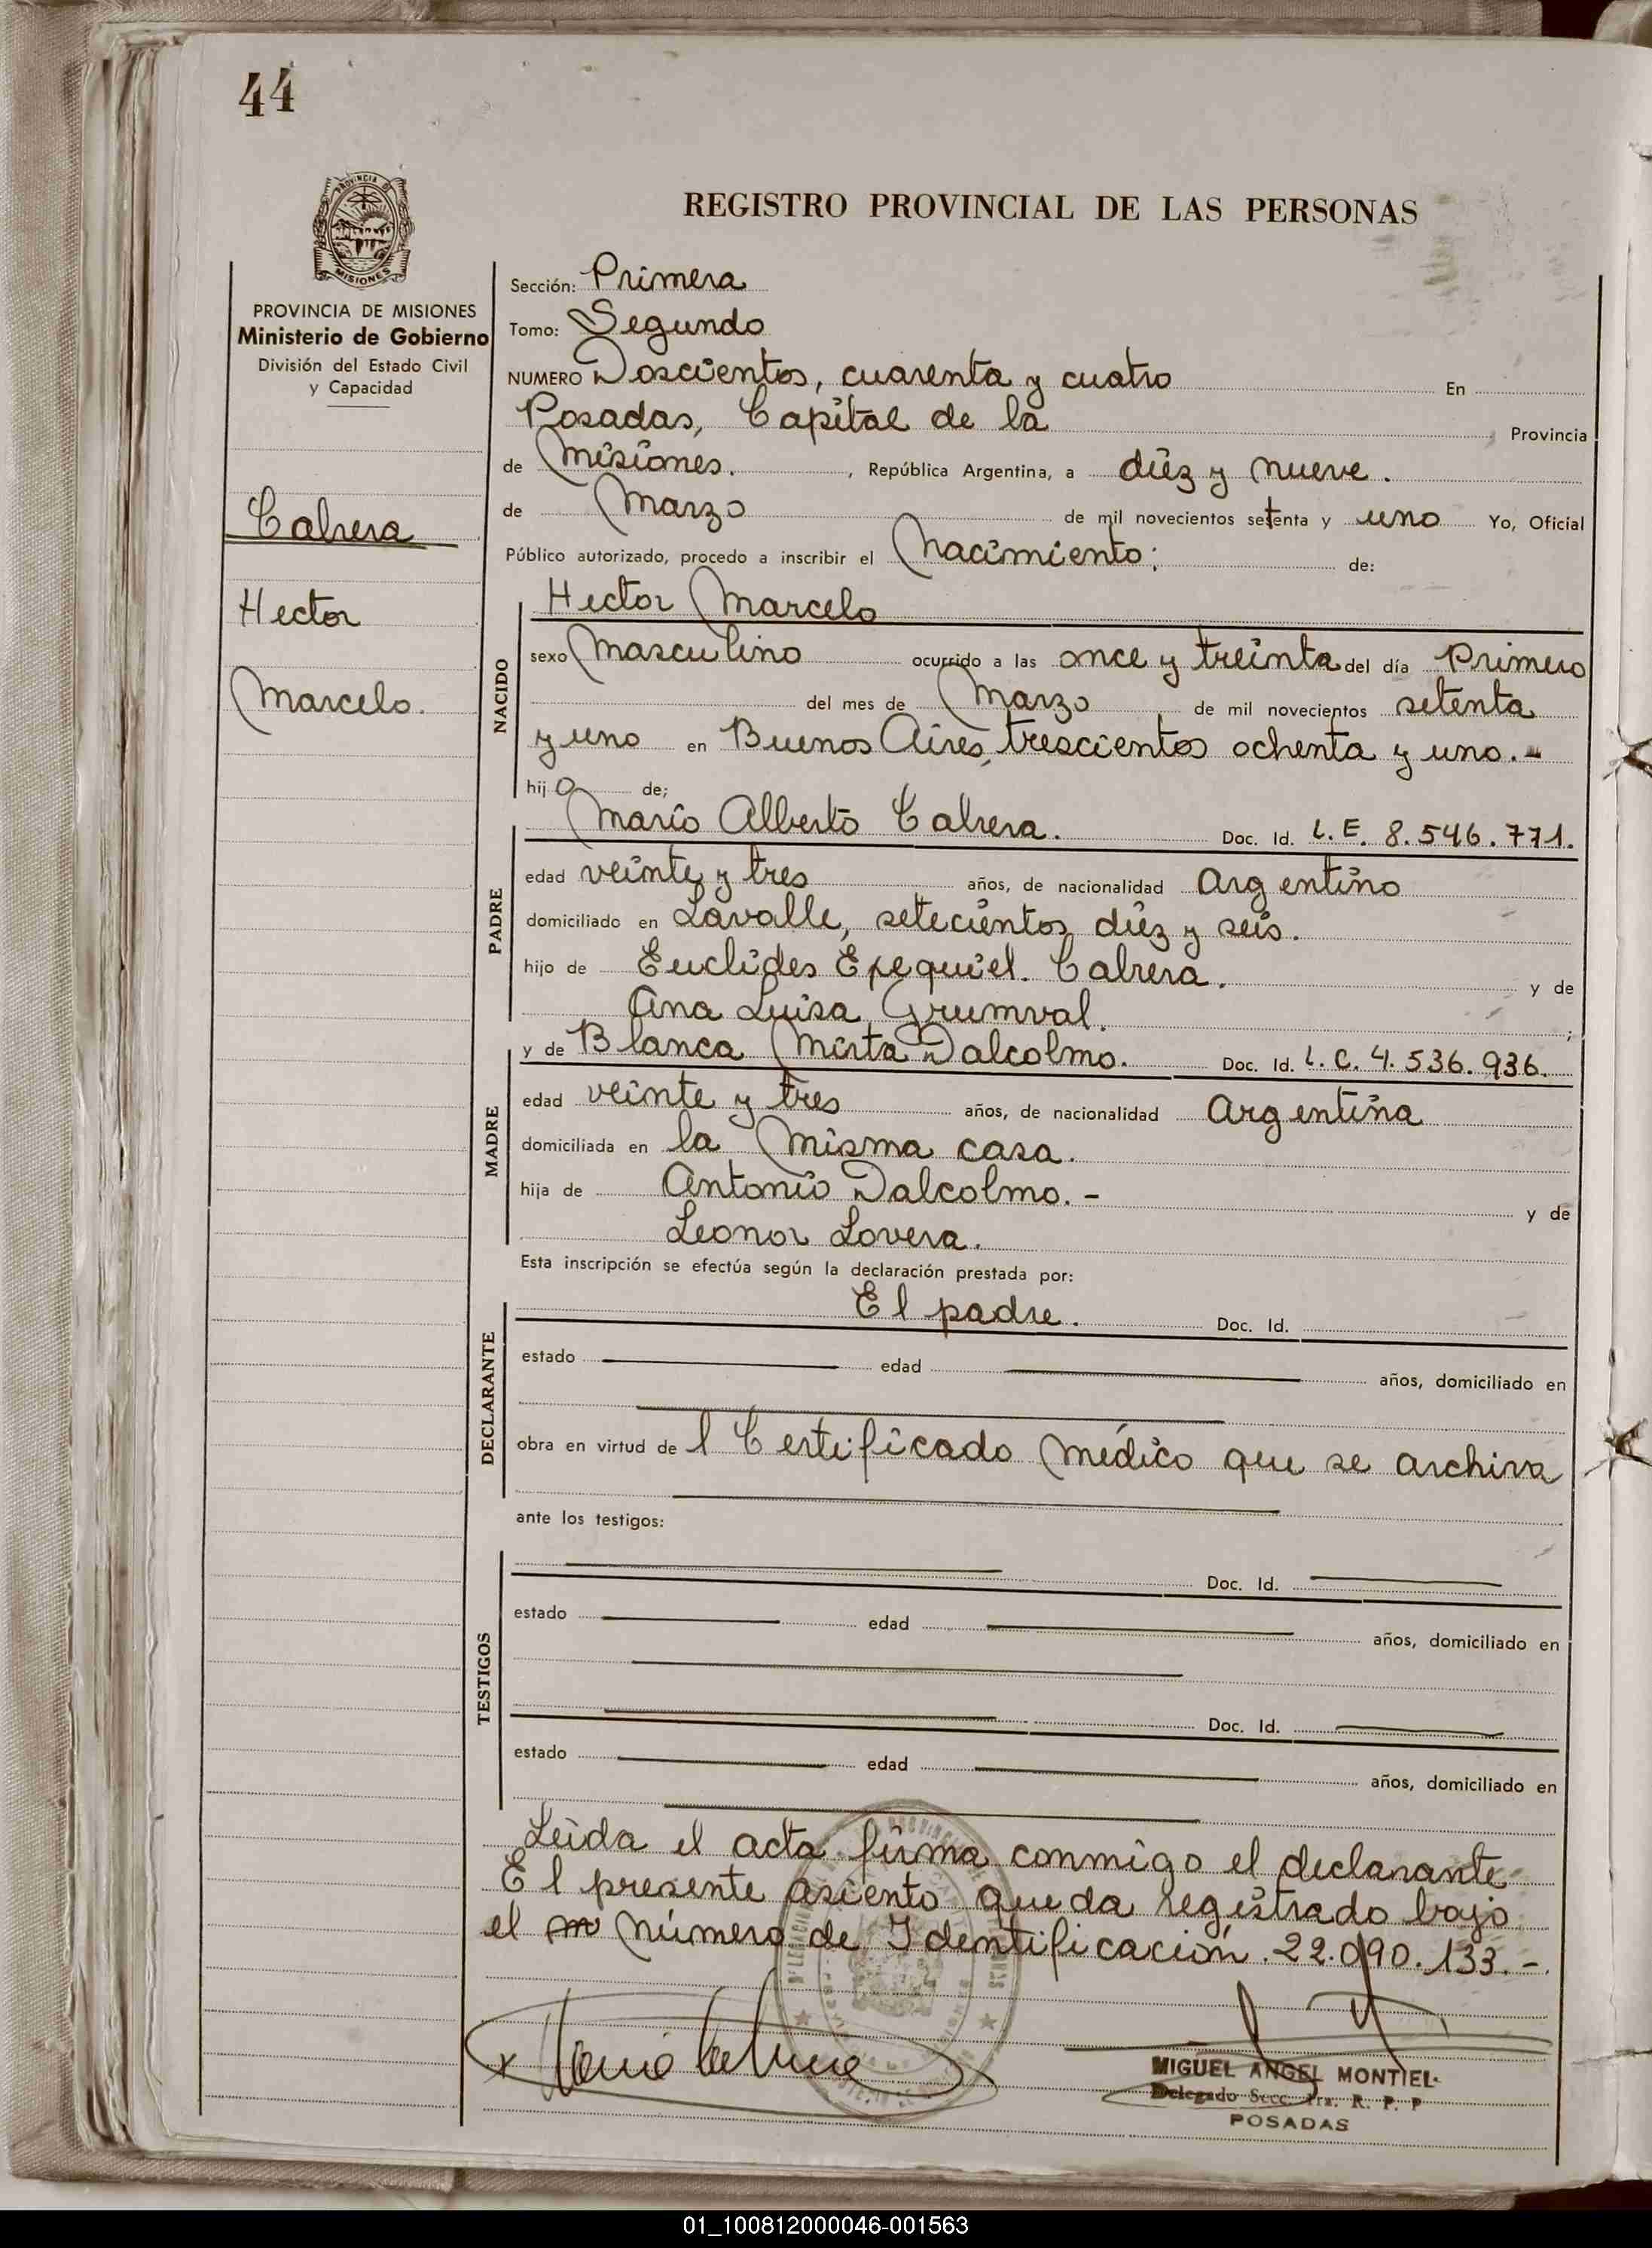 44
PROVINCIA DE
MISIONES
PROVINCIA DE MISIONES
Ministerio de Gobierno
División del Estado Civil
y Capacidad
Cabrera
Hector
Marcelo.
REGISTRO PROVINCIAL DE LAS PERSONAS
Sección: Primera
Tomo: Segundo
NUMERO Doscientos, cuarenta y cuatro En
Posadas, Capital de la Provincia
de Misiones. , República Argentina, a diez y nueve.
de Marzo de mil novecientos setenta y uno Yo, Oficial
Público autorizado, procedo a inscribir el Nacimiento; de:
NACIDO
Hector Marcelo
sexo Masculino ocurrido a las once y treinta del día Primero
del mes de Marzo de mil novecientos setenta
y uno en Buenos Aires, trescientos ochenta y uno.-
hijo de;
PADRE
Mario Alberto Cabrera. Doc. Id. L.E. 8.546.771.
edad veinte y tres años, de nacionalidad Argentino
domiciliado en Lavalle, setecientos diez y seis.
hijo de Euclides Ezequiel. Cabrera. y de
Ana Luisa Grumval. ;
MADRE
y de Blanca Mirta Dalcolmo. Doc. Id. L.C. 4.536.936.
edad veinte y tres años, de nacionalidad Argentina
domiciliada en la misma casa.
hija de Antonio Dalcolmo.- y de
Leonor Lovera.
Esta inscripción se efectúa según la declaración prestada por:
DECLARANTE
El padre. Doc. Id.
estado edad años, domiciliado en
obra en virtud de l Certificado Médico que se archiva
ante los testigos:
TESTIGOS
Doc. Id.
estado edad años, domiciliado en
Doc. Id.
estado edad años, domiciliado en
Leida el acta firma conmigo el declarante
El presente asiento queda registrado bajo
el número de Identificación. 22.090.133.-
MIGUEL ANGEL MONTIEL
Delegado Secc. 1ra. R. P. P
POSADAS
01_100812000046-001563